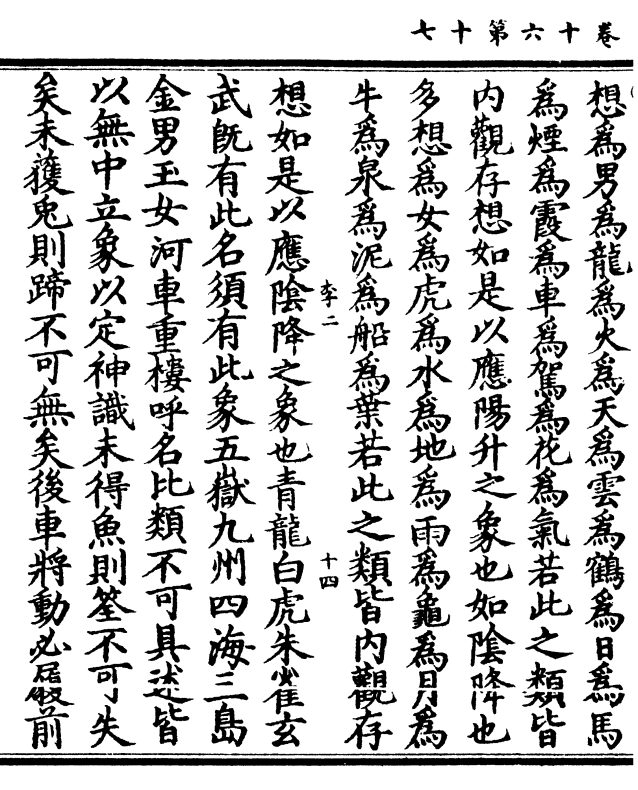 卷十六第十七
想爲男爲龍爲火爲天爲雲爲鶴爲日爲馬
爲煙爲霞爲車爲駕爲花爲氣若此之類皆
内觀存想如是以應陽升之象也如陰降也
多想爲女爲虎爲水爲地爲雨爲龜爲月爲
牛爲泉爲泥爲船爲葉若此之類皆内觀存
李二 十四
想如是以應陰降之象也青龍白虎朱雀玄
武既有此名須有此象五嶽九州四海三島
金男玉女河車重樓呼名比類不可具述皆
以無中立象以定神識未得魚則筌不可失
矣未獲兔則蹄不可無矣後車將動必履前